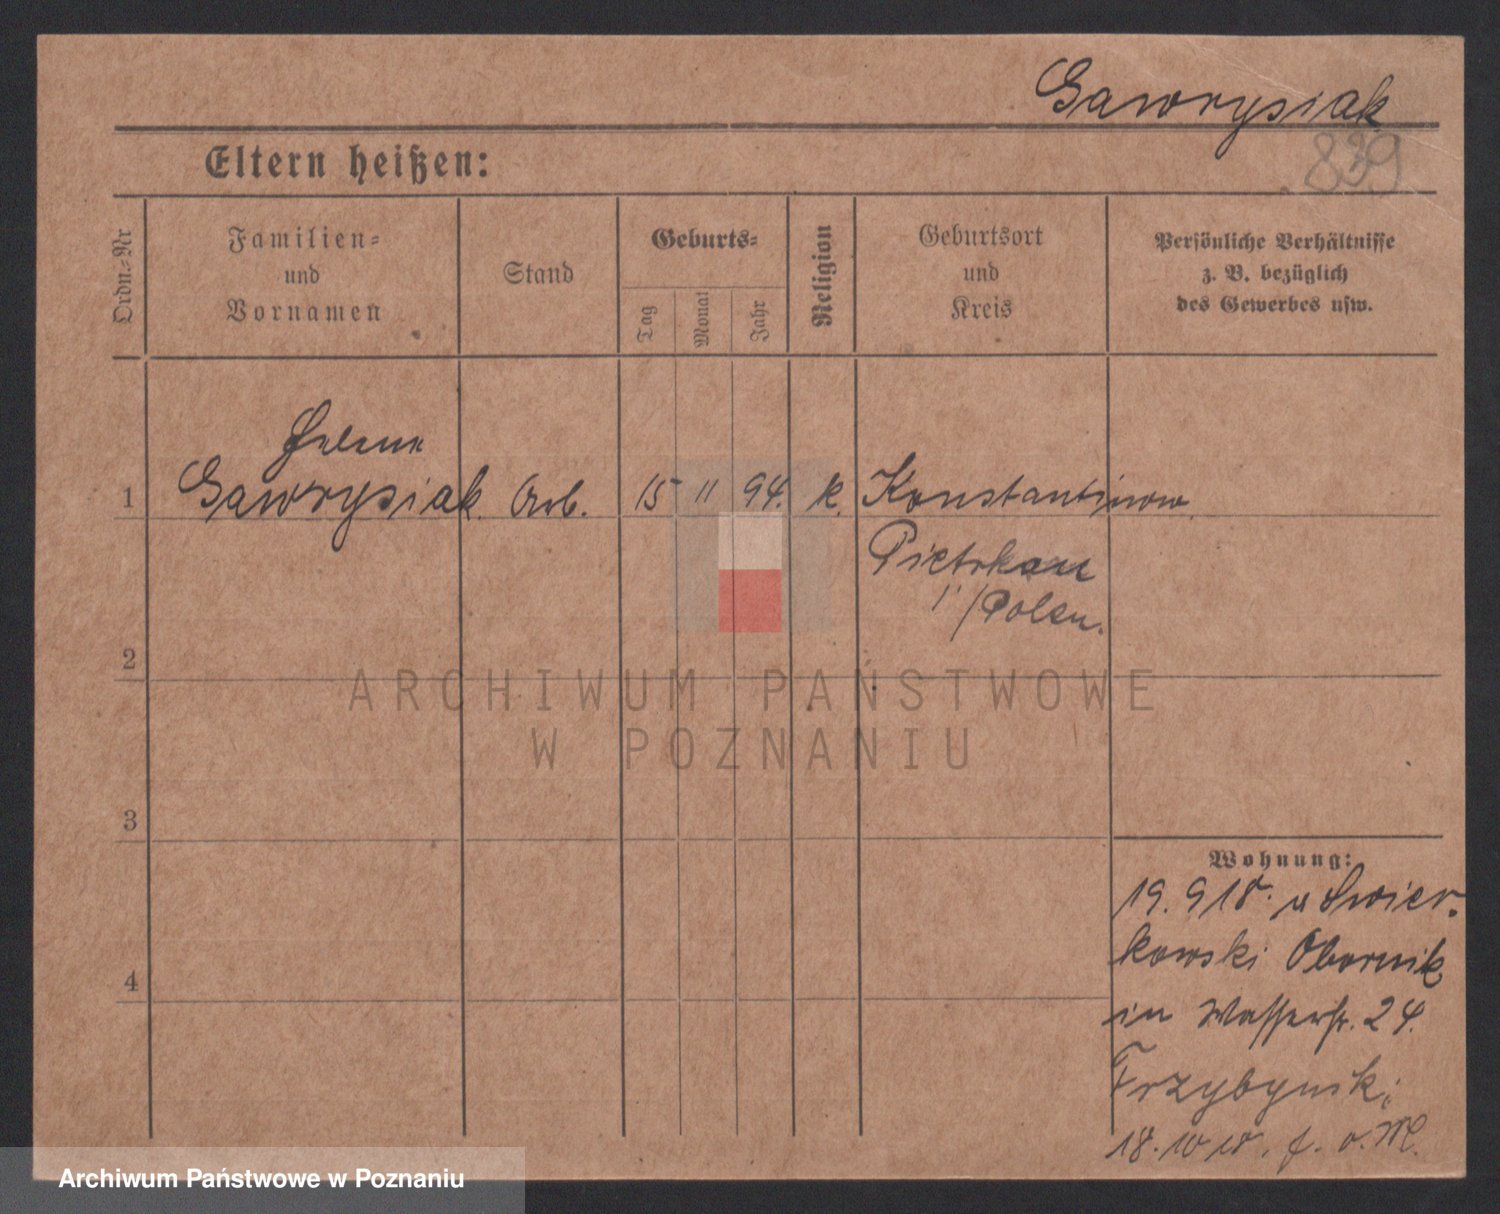 Gawrysiak
839
Eltern heißen:
Ordn.-Nr
Familien-
und
Vornamen
Stand
Geburts-
Tag
Monat
Jahr
Religion
Geburtsort
und
Kreis
Persönliche Verhältnisse
z. B. bezüglich
des Gewerbes usw.
Helene
1 Gawrysiak Arb. 15 11 94. k. Konstantinow
Pietrkau
/Polen.
2
ARCHIWUM PAŃSTWOWE
W POZNANIU
3
Wohnung:
19. 9 18. Swier-
kowski Obornik
4
in Wasserstr. 24.
Przybynski
18. 10 18.
Archiwum Państwowe w Poznaniu